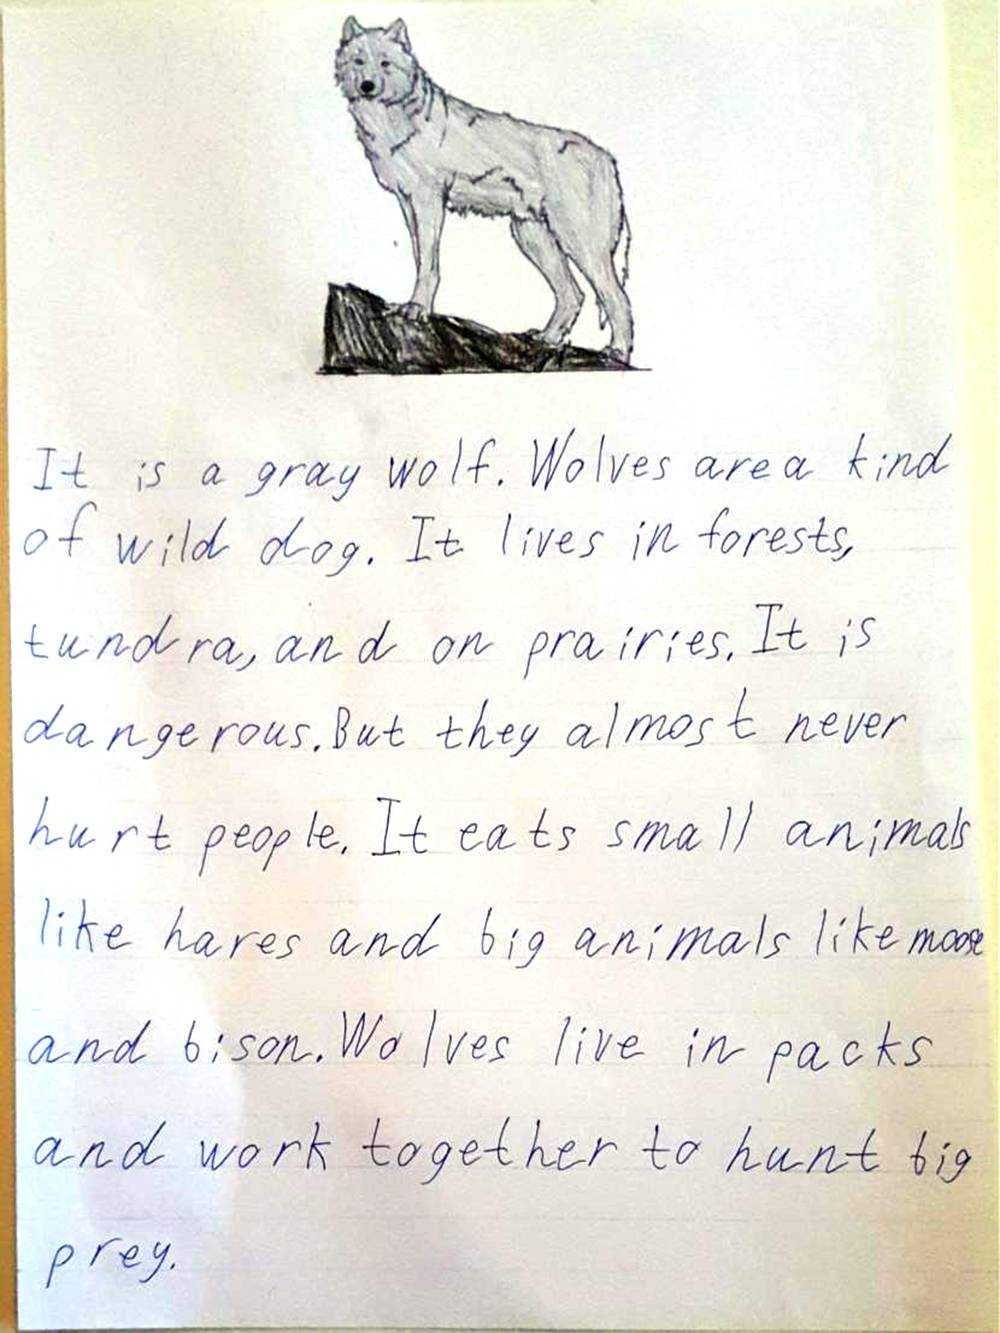 It is a gray wolf. Wolves are a kind
of wild dog. It lives in forests,
tundra, and on prairies. It is
dangerous. But they almost never
hurt people. It eats small animals
like hares and big animals like moose
and bison. Wolves live in packs
and work together to hunt big
prey.